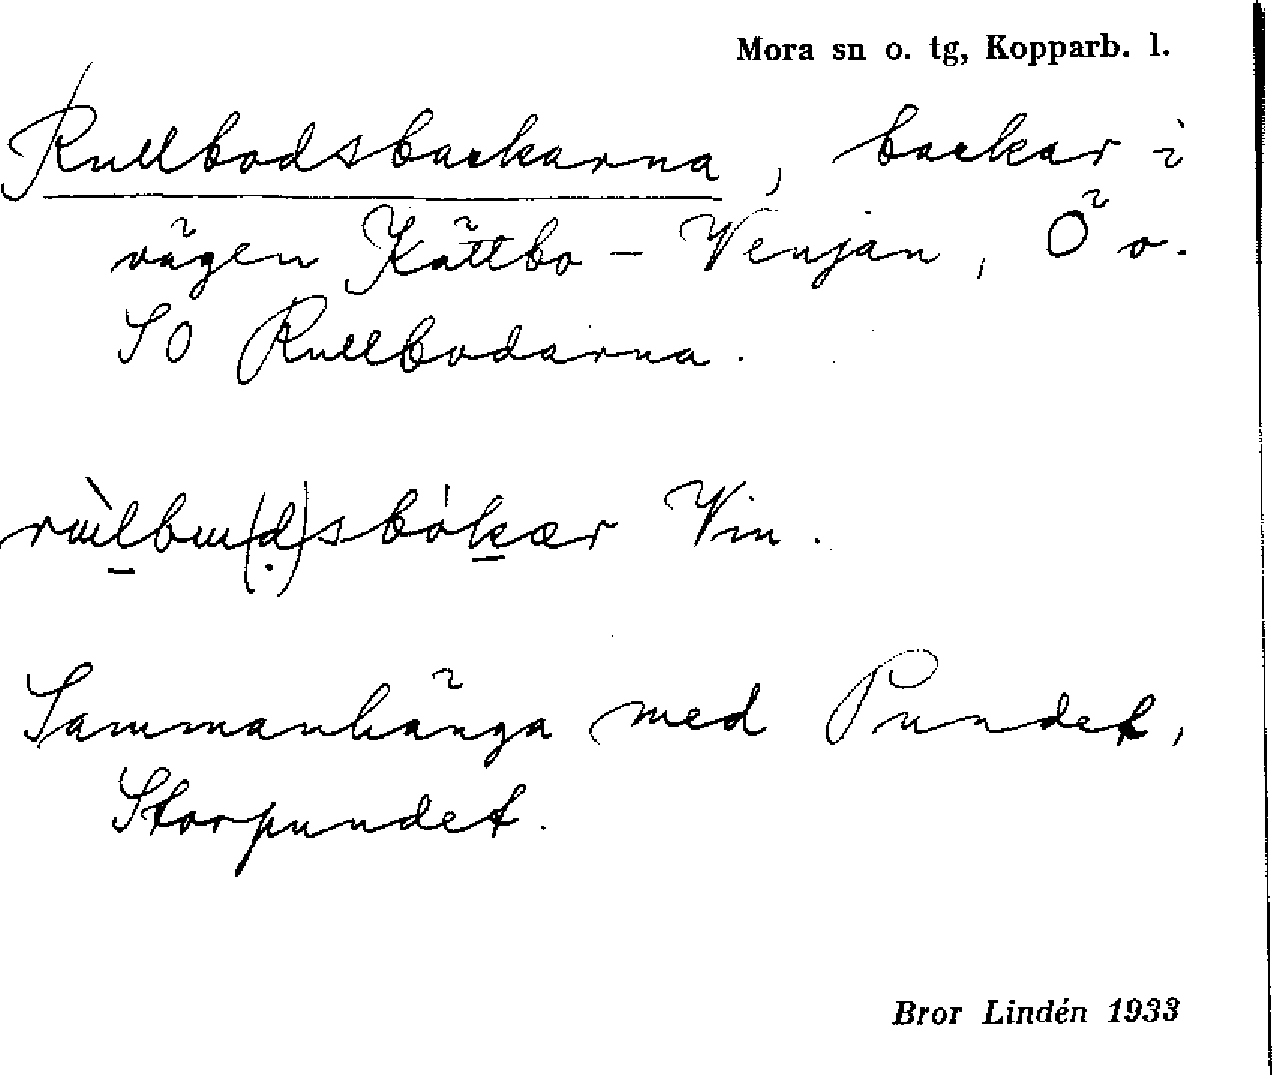 Mora sn o. tg, Kopparb. l.
Rullbodsbackarna, backar i
vägen Kättbo – Venjan, Ö o.
SO Rullbodarna.
Vin.
Sammanhänga med Pundet,
Storpundet.
Bror Lindén 1933